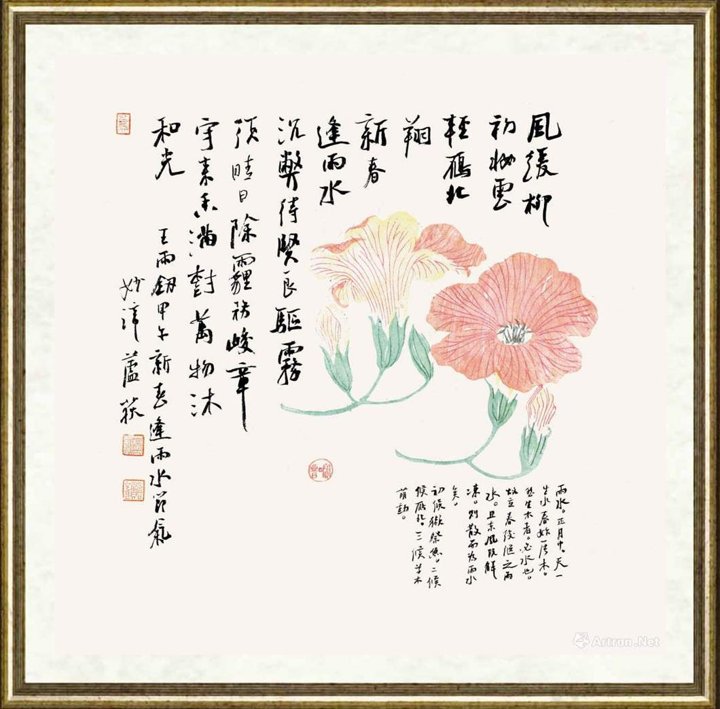 風緩柳
初雲
輕鴈北
翔
新春
逢雨水
沉弊待賢良驅霧
須晴日除霾務峻章
宇對萬物沐
和光
王雨甲午新春逢雨水節氣
妙諦
雨水。正月中。天一
生水春始属木。
然生木者。必水也。
故立春後继之雨
水。且东風既解
凍。则散而為雨水
矣。
初候獭祭鱼。二候
候雁北。三候草木
萌動。
Artron.Net